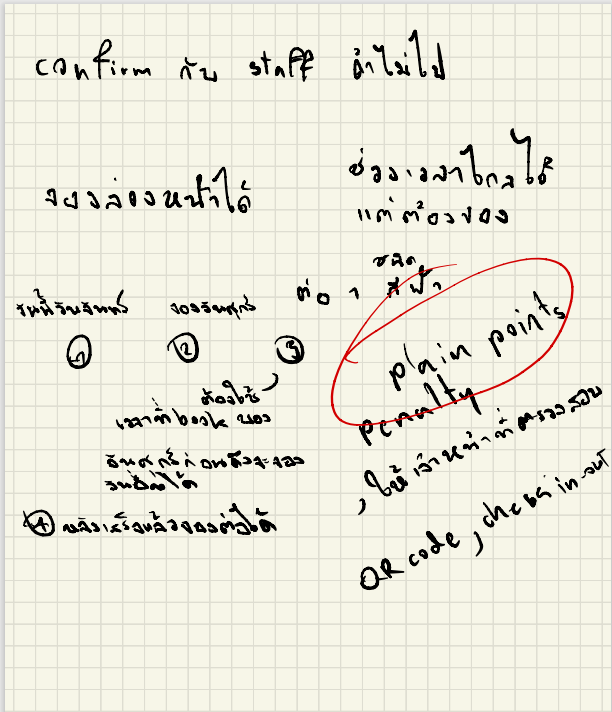 confirm กับ staff ถ้าไม่ไป
จองล่วงหน้าได้
ช่วงเวลาใกลได้
แต่ต้องจอง
ต่อ 1 ชนิด
กีฬา
วันนี้วันจันทร์
จองวันศุกร์
1 2 3
ต้องใช้
เวลาที่ book ของ
วันศุกร์ก่อนถึงจะจอง
วันอื่นได้
4 หลังเสร็จแล้วจองต่อได้
plain points
penalty
, ให้เจ้าหน้าที่ตรวจสอบ
QR code, check in-out